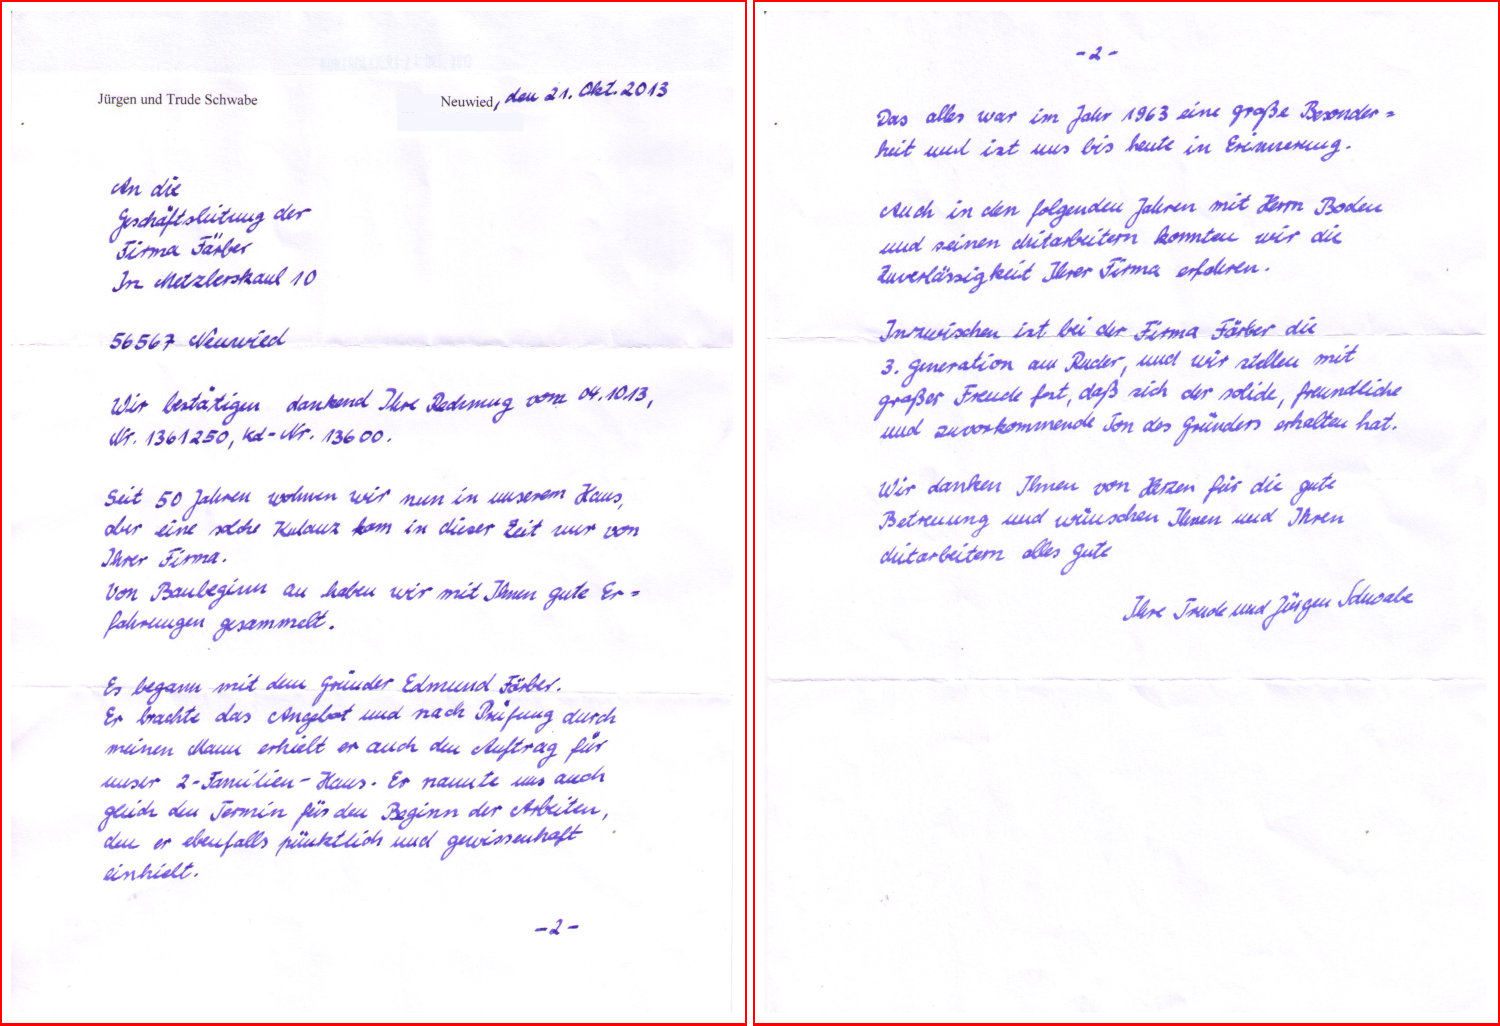 Jürgen und Trude Schwabe
Neuwied, den 21. Okt. 2013
An die
Geschäftsleitung der
Firma Färber
In Metzlerskaul 10
56567 Neuwied
Wir bestätigen dankend Ihre Rechnung vom 04.10.13,
Nr. 1361250, Kd-Nr. 13600.
Seit 50 Jahren wohnen wir nun in unserem Haus,
aber eine solche Kulanz kam in dieser Zeit nur von
Ihrer Firma.
Von Baubeginn an haben wir mit Ihnen gute Er=
fahrungen gesammelt.
Es begann mit dem Gründer Edmund Färber.
Er brachte das Angebot und nach Prüfung durch
meinen Mann erhielt er auch den Auftrag für
unser 2-Familien-Haus. Er nannte uns auch
gleich den Termin für den Beginn der Arbeiten,
den er ebenfalls pünktlich und gewissenhaft
einhielt.
-2-
-2-
Das alles war im Jahr 1963 eine große Besonder=
heit und ist uns bis heute in Erinnerung.
Auch in den folgenden Jahren mit Herrn Boden
und seinen Mitarbeitern konnten wir die
Zuverlässigkeit Ihrer Firma erfahren.
Inzwischen ist bei der Firma Färber die
3. Generation am Ruder, und wir stellen mit
großer Freude fest, daß sich der solide, freundliche
und zuvorkommende Ton des Gründers erhalten hat.
Wir danken Ihnen von Herzen für die gute
Betreuung und wünschen Ihnen und Ihren
Mitarbeitern alles Gute
Ihre Trude und Jürgen Schwabe